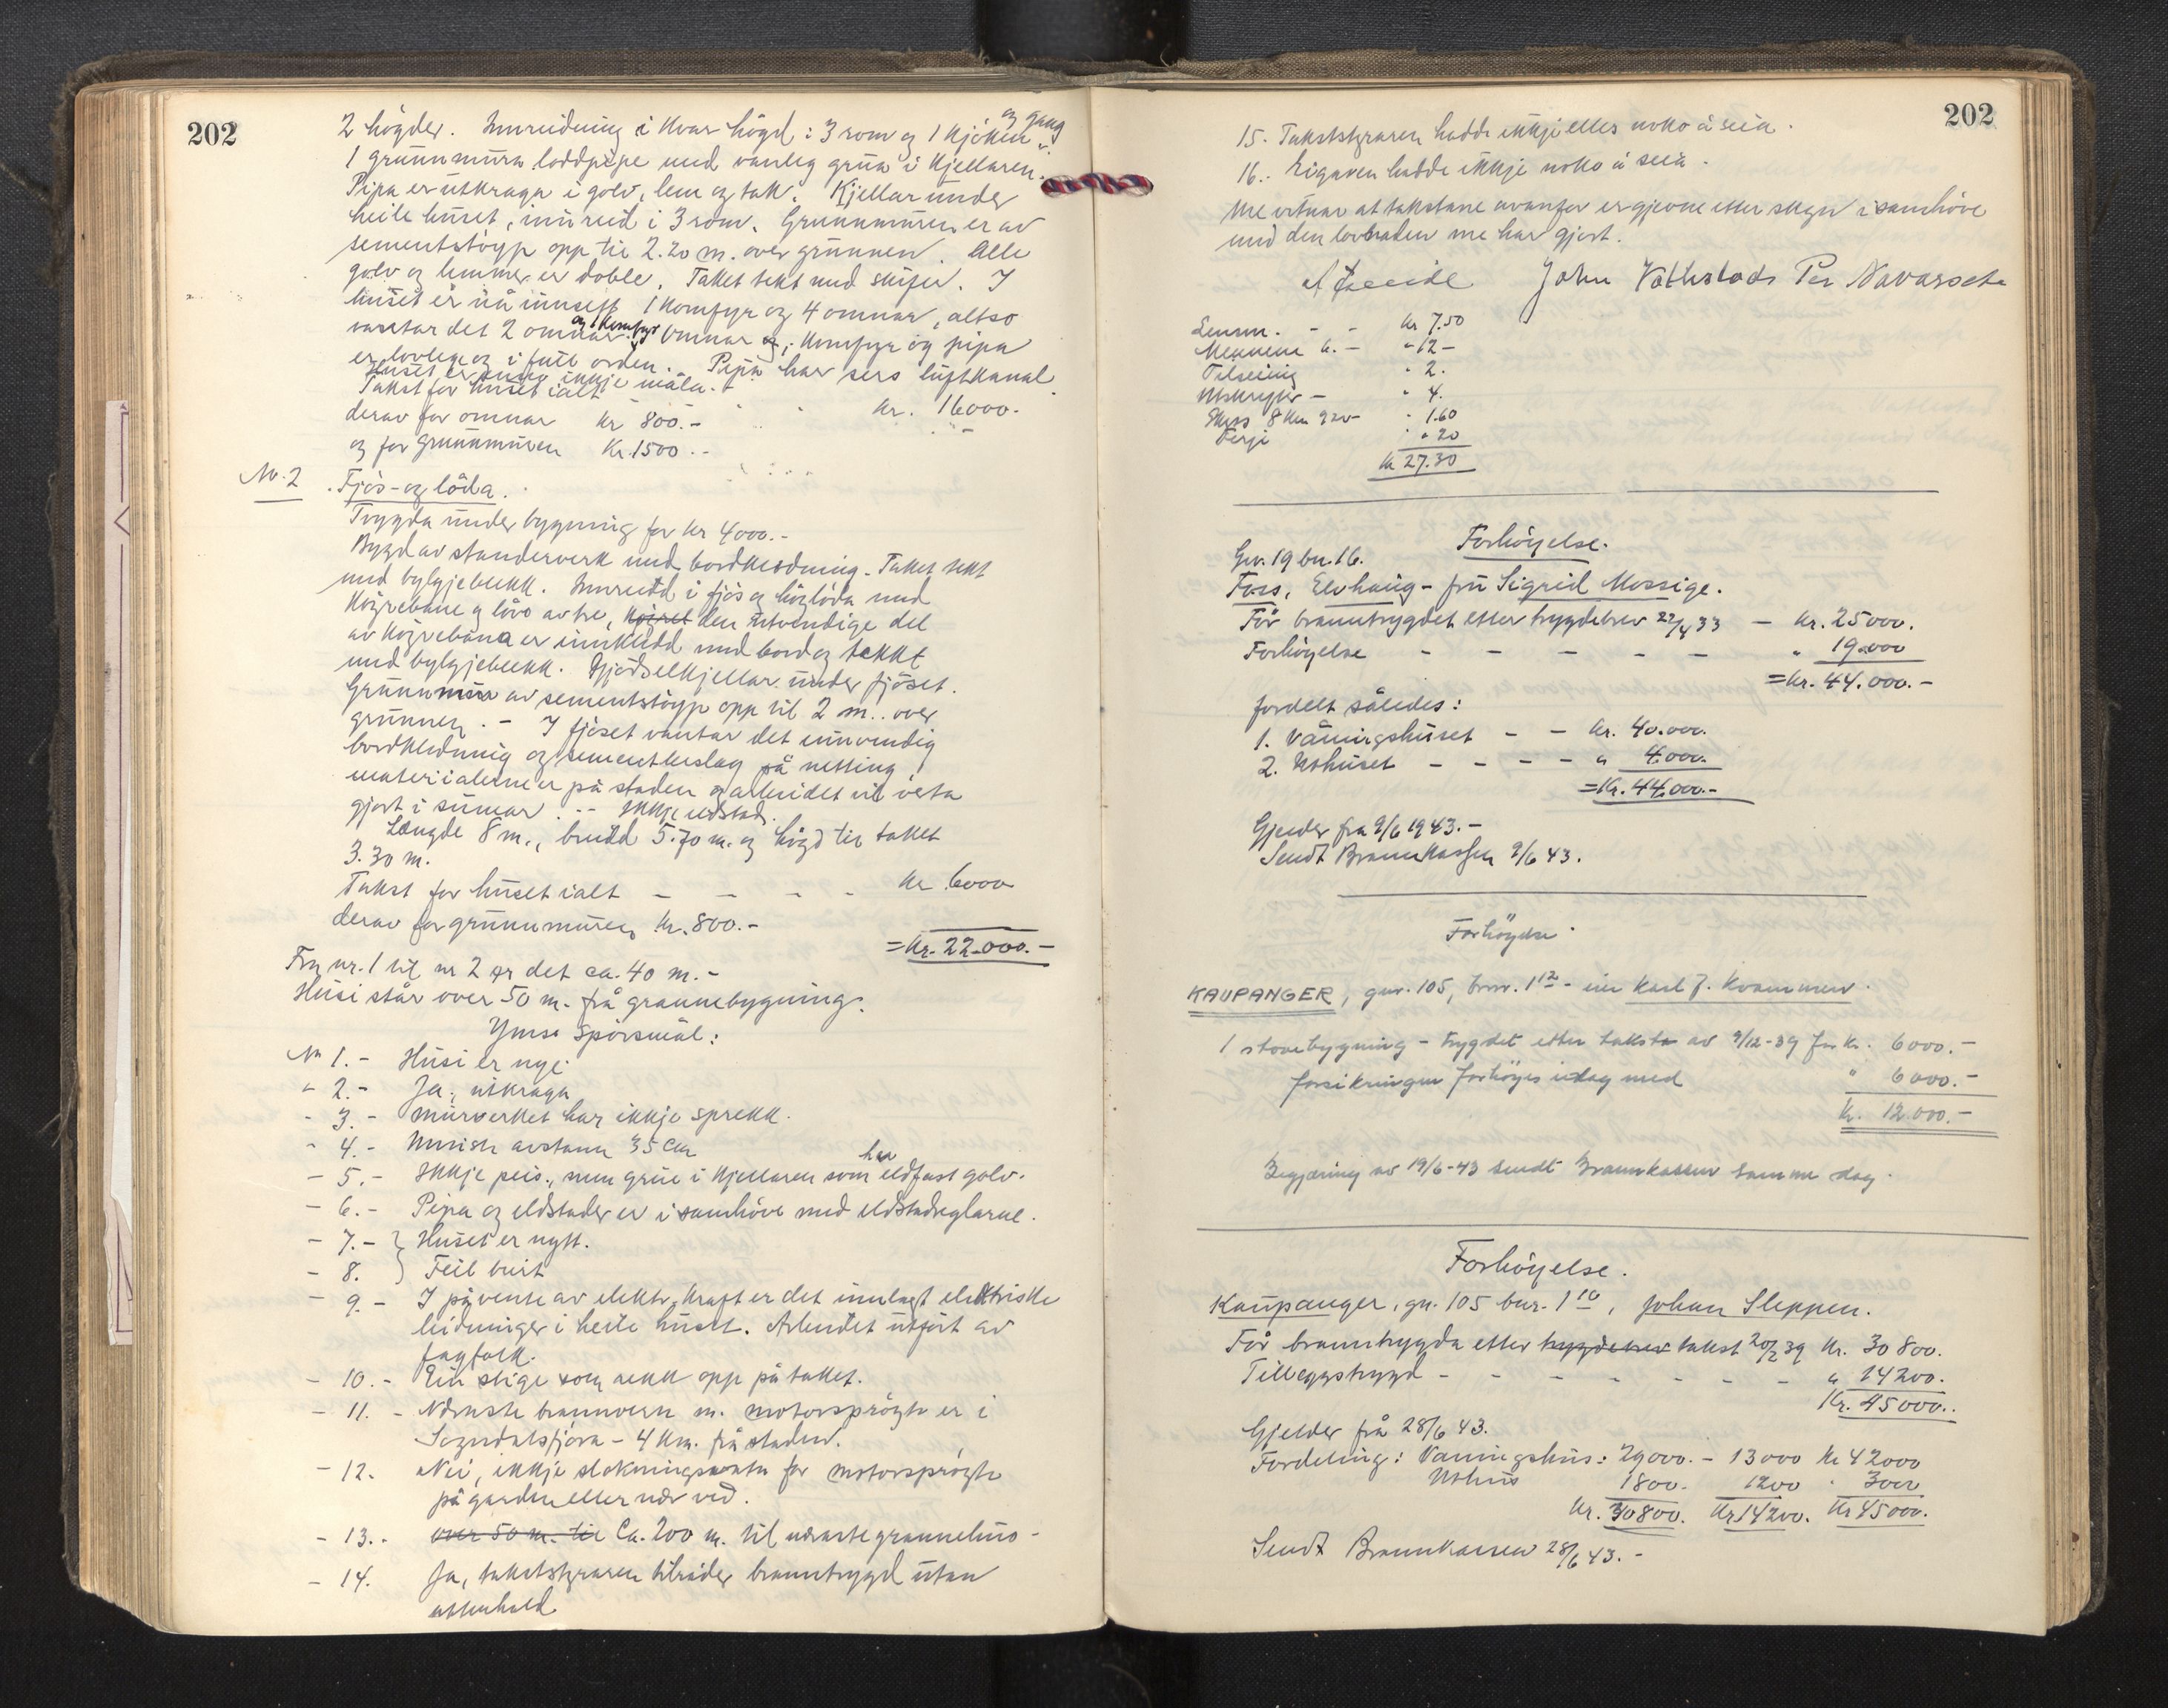 202
2 högder. Innreidning i kvar högd: 3 rom og 1 kjöken og gang
1 grunnmura loddpipe med vanleg grua i kjellaren.
Pipa er utkraga i golv, lem og tak. Kjellar under
heile huset, innreid i 3 rom. Grunnmuren er av
sementstöyp opp til 2.20 m. over grunnen. Alle
golv og lemmer er doble. Taket tekt med skifer. I
huset er nå innsett 1 komfyr og 4 omnar, altso
vantar det 2 omnar og komfyr. Omnar og komfyr og pipa
er lovlege og i full orden. Pipa har sers luftkanal.
Huset er enno ikkje måla.
Takst for huset ialt kr. 16000.-
derav for omnar kr 800.-
og for grunnmuren Kr. 1500.-
Nr. 2 Fjös- og löda.
Trygda under bygning for kr 4000.-
Bygd av standerverk med bordkledning. Taket tekt
med bylgjeblekk. Innreidd i fjös og höylöda med
köyrebane og lövo av tre, köyret den utvendige del
av köyrebana er innkledd med bord og tekkt
med bylgjeblekk. Gjödselkjellar under fjöset.
Grunnmur av sementstöyp opp til 2 m. over
grunnen. - I fjöset vantar det innvendig
bordkledning og sementbeslag på netting,
materialene er på staden og arbeidet vil verta
gjort i sumar. - Ikkje eldstad.
Længde 8 m., breidd 5.70 m. og högd til taket
3.30 m.
Takst for huset ialt - - - - kr 6000
derav for grunnmuren kr. 800.-
= kr. 22.000.-
Frå nr. 1 til nr 2 er det ca. 40 m.-
Husi står over 50 m. frå grannebygning.
Ymse spörsmål:
Nr 1.- Husi er nye
" 2.- Ja, utkraga
- 3.- Murverket har ikkje sprekk.
- 4.- Minste avstann 35 cm
- 5.- Ikkje peis, men grue i kjellaren som har eldfast golv.
- 6.- Pipa og eldstader er i samhöve med eldstadreglarne.
- 7.- } Huset er nytt.
- 8. } Feil burt
- 9.- I påvente av elektr. kraft er det innlagt elektriske
leidninger i heile huset. Arbeidet utfört av
fagfolk.
- 10.- Ein stige som rekk opp på taket.
- 11.- Nærmste brannvern m. motorspröyte er i
Sogndalsfjöra - 4 km. frå staden.
- 12. Nei, ikkje slokningsvatn for motorspröyte
på garden eller nær ved.
- 13.- over 50 m. til Ca. 200 m. til næraste grannehus -
- 14. Ja, takstsyraren tilråder branntrygd utan
atterhald
202
15. Takststyraren hadde ikkje elles noko å seia.
16.- Eigaren hadde ikkje noko å seia.
Me vitnar at takstane ovanfor er gjevne etter skyn i samhöve
med den lovnaden me har gjort.
John Vatlestads Per Navarsete
Lensm. - - kr 7.50
Mennene 6.- " 12-
Tilseiing " 2.
Utskrifter - " 4.
Skyss 8 km 920- " 1.60
Ferje " 20
kr 27.30
Forhöyelse.
Gn. 19 bn. 16.
Foss, Elvhaug - fru Sigrid Mossige.
För branntrygdet etter trygdebrev 22/4 33 - kr. 25000.
Forhöyelse - - - - - " 19.000
= kr. 44.000.-
fordelt således:
1. Våningshuset - - kr. 40.000.
2. Uthuset - - - - " 4.000.
= Kr. 44.000.-
Gjelder fra 9/6 1943.-
Sendt Brannkassen 9/6 43.
Forhöyelse.
KAUPANGER, gnr. 105, brnr. 1 12 - Karl J. Kvammen.
1 stovebygning - trygdet etter takst av 9/12-39 for kr. 6000.-
forsikringen forhöyes idag med " 6000.-
kr. 12.000.-
Begjæring av 19/6-43 sendt Brannkassen samme dag.
Forhöyelse.
Kaupanger, gn. 105 bnr. 1 10, Johan Sleppen.
För branntrygda etter trygdebrev takst 20/2 39 kr. 30800.
Tilleggstrygd - - - - - - - " 14200.
Kr. 45000.
Gjelder frå 28/6 43.
Fordeling: Vaningshus: 29000.- 13000 kr 42000
Uthus 1800. 1200 " 3000
kr. 30800. kr 14200. kr 45000.
Sendt Brannkassen 28/6 43.-